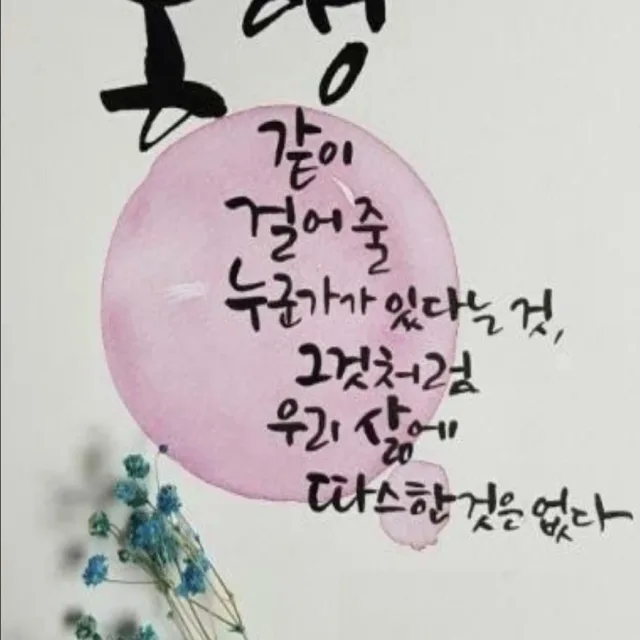 동행
같이
걸어 줄
누군가가 있다는 것,
그것처럼
우리 삶에
따스한 것은 없다